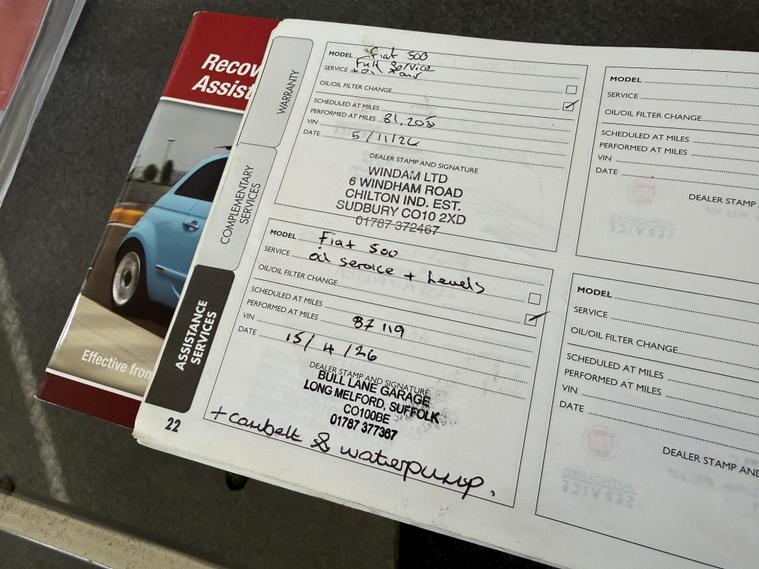 Recov
Assist
Effective from
WARRANTY
COMPLEMENTARY
SERVICES
ASSISTANCE
SERVICES
22
MODEL Fiat 500
SERVICE Full Service
OIL/OIL FILTER CHANGE
SCHEDULED AT MILES
PERFORMED AT MILES 81,205
VIN
DATE 5/11/24
DEALER STAMP AND SIGNATURE
WINDAM LTD
6 WINDHAM ROAD
CHILTON IND. EST.
SUDBURY CO10 2XD
01787 372467
MODEL Fiat 500
SERVICE oil service + Levels
OIL/OIL FILTER CHANGE
SCHEDULED AT MILES
PERFORMED AT MILES 87 119
VIN
DATE 15/4/26
DEALER STAMP AND SIGNATURE
BULL LANE GARAGE
LONG MELFORD, SUFFOLK
CO100BE
01787 377367
+ cambelt & waterpump.
MODEL
SERVICE
OIL/OIL FILTER CHANGE
SCHEDULED AT MILES
PERFORMED AT MILES
VIN
DATE
DEALER STAMP
MODEL
SERVICE
OIL/OIL FILTER CHANGE
SCHEDULED AT MILES
PERFORMED AT MILES
VIN
DATE
DEALER STAMP AND